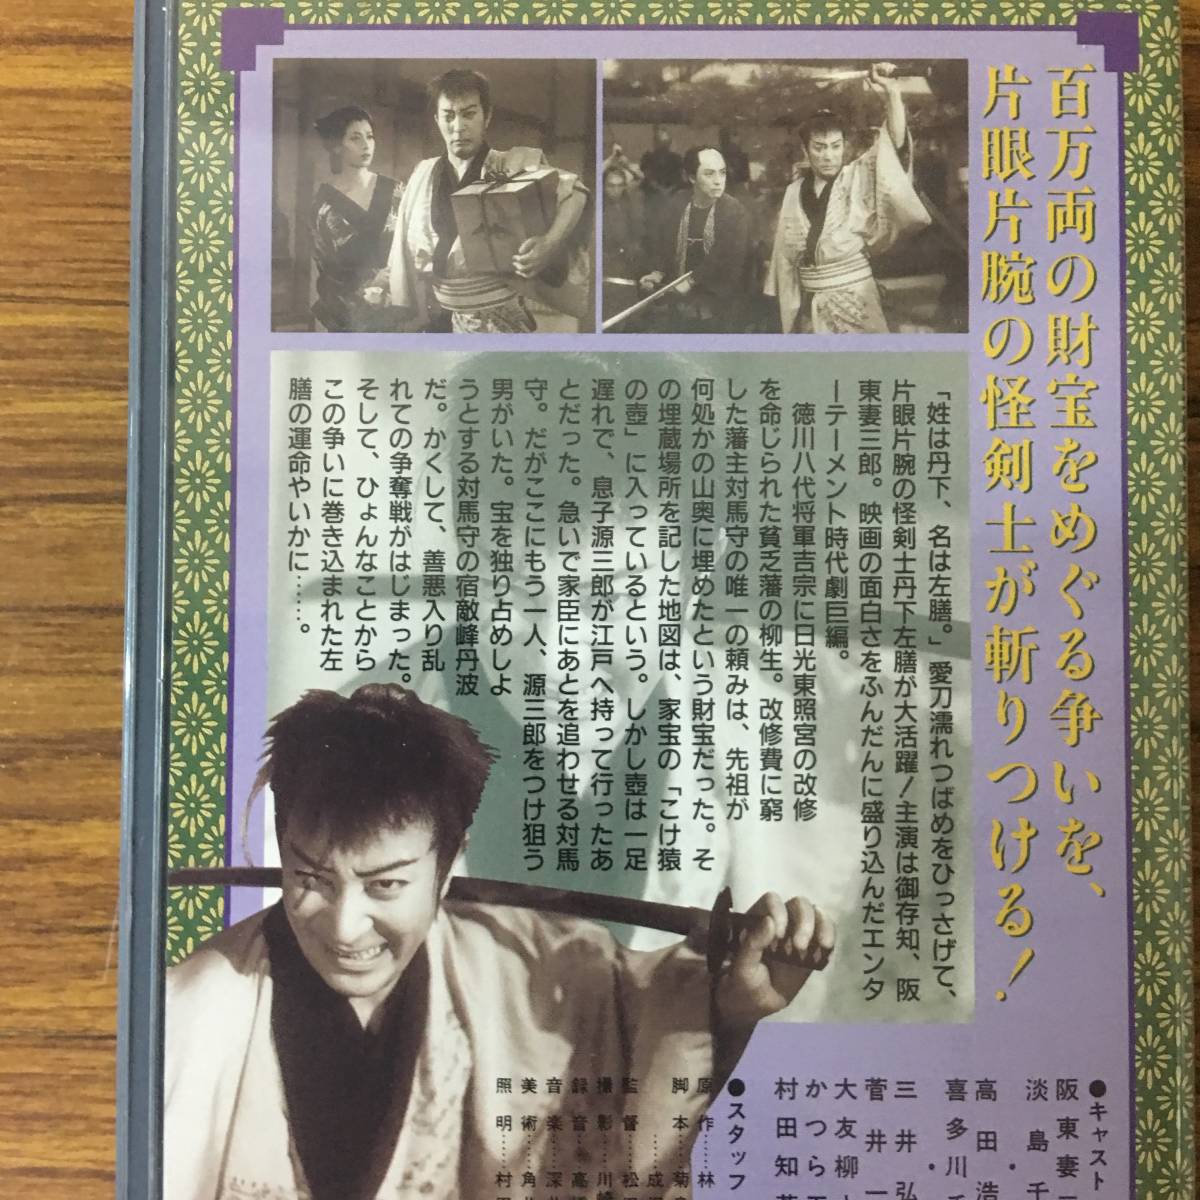 百万両の財宝をめぐる争いを、
片眼片腕の怪剣士が斬りつける!
「姓は丹下、名は左膳。」愛刀濡れつばめをひっさげて、
片眼片腕の怪剣士丹下左膳が大活躍!主演は御存知、阪
東妻三郎。映画の面白さをふんだんに盛り込んだエンタ
ーテーメント時代劇巨編。
徳川八代将軍吉宗に日光東照宮の改修
を命じられた貧乏藩の柳生。改修費に窮
した藩主対馬守の唯一の頼みは、先祖が
何処かの山奥に埋めたという財宝だった。そ
の埋蔵場所を記した地図は、家宝の「こけ猿
の壺」に入っているという。しかし壺は一足
遅れで、息子源三郎が江戸へ持って行ったあ
とだった。急いで家臣にあとを追わせる対馬
守。だがここにもう一人、源三郎をつけ狙う
男がいた。宝を独り占めしよ
うとする対馬守の宿敵峰丹波
だ。かくして、善悪入り乱
れての争奪戦がはじまった。
そして、ひょんなことから
この争いに巻き込まれた左
膳の運命やいかに……。
●キャスト
阪東妻
淡島千
高田浩
喜多川
三井弘
菅井一
大友柳
かつら
村田知
●スタッフ
原作……林
脚本……菊
……成
監督……松
撮影……川崎
録音……高橋
音楽……深
美術……角
照明……村